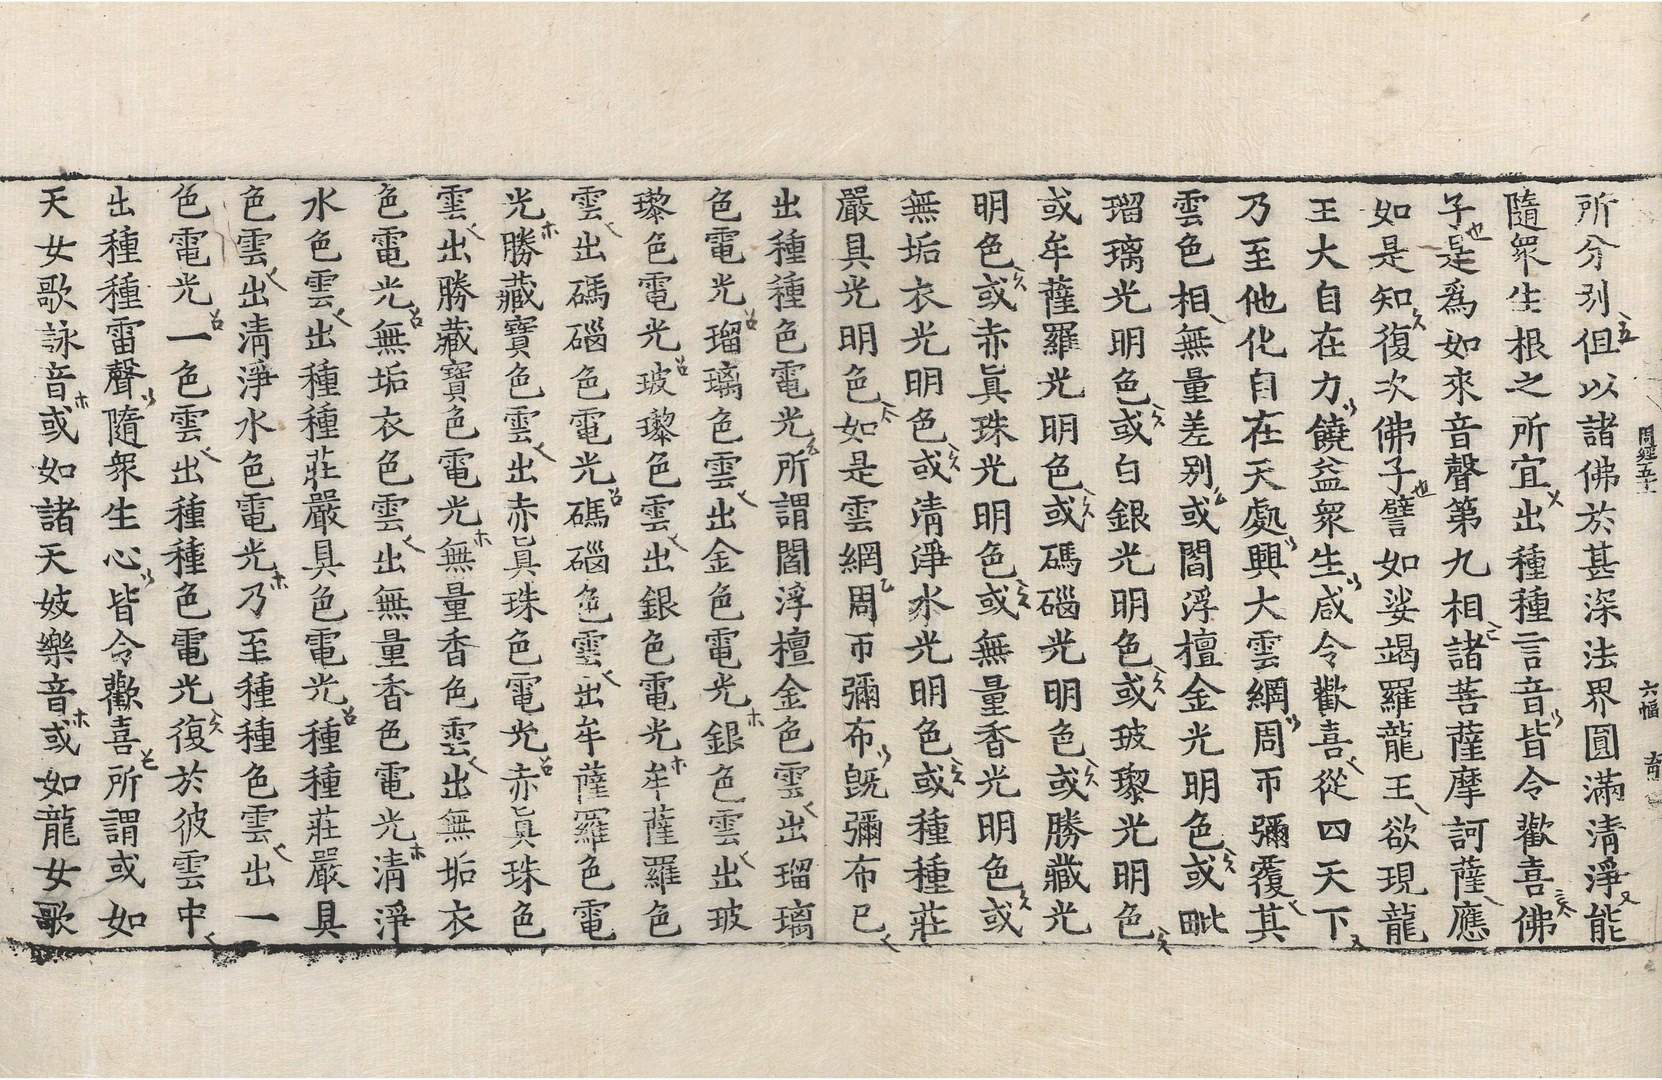 周經五十一 六幅 育
所分別但以諸佛於甚深法界圓滿清淨能
隨衆生根之所宜出種種言音皆令歡喜佛
子是爲如來音聲第九相諸菩薩摩訶薩應
如是知復次佛子譬如娑竭羅龍王欲現龍
王大自在力饒益衆生咸令歡喜從四天下
乃至他化自在天處興大雲網周帀彌覆其
雲色相無量差別或閻浮檀金光明色或毗
瑠璃光明色或白銀光明色或玻瓈光明色
或牟薩羅光明色或碼碯光明色或勝藏光
明色或赤眞珠光明色或無量香光明色或
無垢衣光明色或清淨水光明色或種種莊
嚴具光明色如是雲網周帀彌布旣彌布已
出種種色電光所謂閻浮檀金色雲出瑠璃
色電光瑠璃色雲出金色電光銀色雲出玻
瓈色電光玻瓈色雲出銀色電光牟薩羅色
雲出碼碯色電光碼碯色雲出牟薩羅色電
光勝藏寶色雲出赤眞珠色電光赤眞珠色
雲出勝藏寶色電光無量香色雲出無垢衣
色電光無垢衣色雲出無量香色電光清淨
水色雲出種種莊嚴具色電光種種莊嚴具
色雲出清淨水色電光乃至種種色雲出一
色電光一色雲出種種色電光復於彼雲中
出種種雷聲隨衆生心皆令歡喜所謂或如
天女歌詠音或如諸天妓樂音或如龍女歌